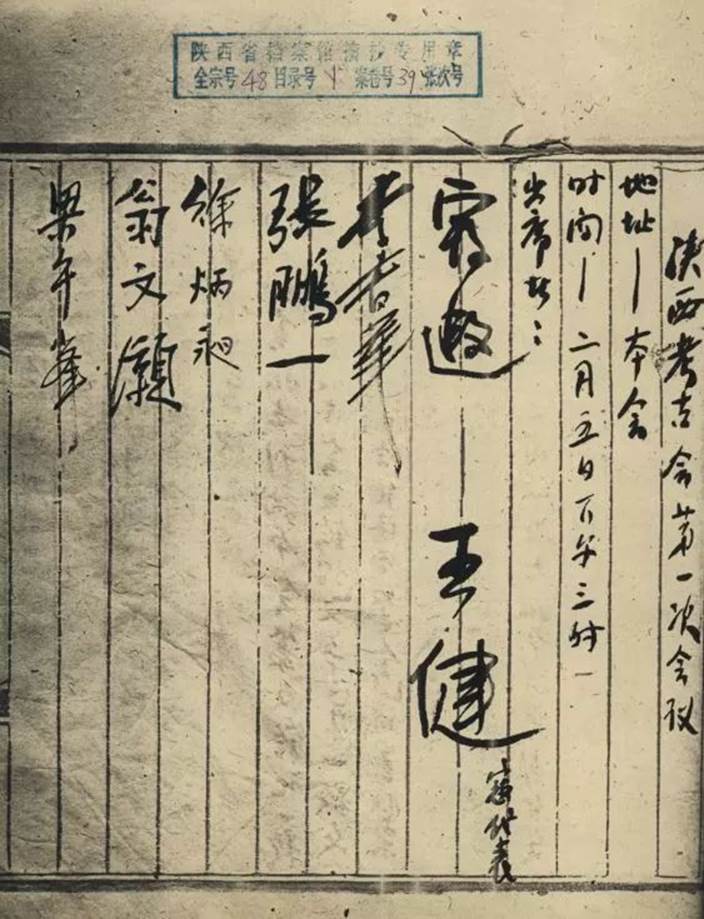 陕西省档案馆摘抄专用章
全宗号48目录号1案卷号39张次号
陕西考古会第一次会议
地址—本会
时间—二月五日下午三时—
出席者:
寇遐—王健
寇代表
李书华
张鹏一
徐炳昶
翁文灏
梁午峰